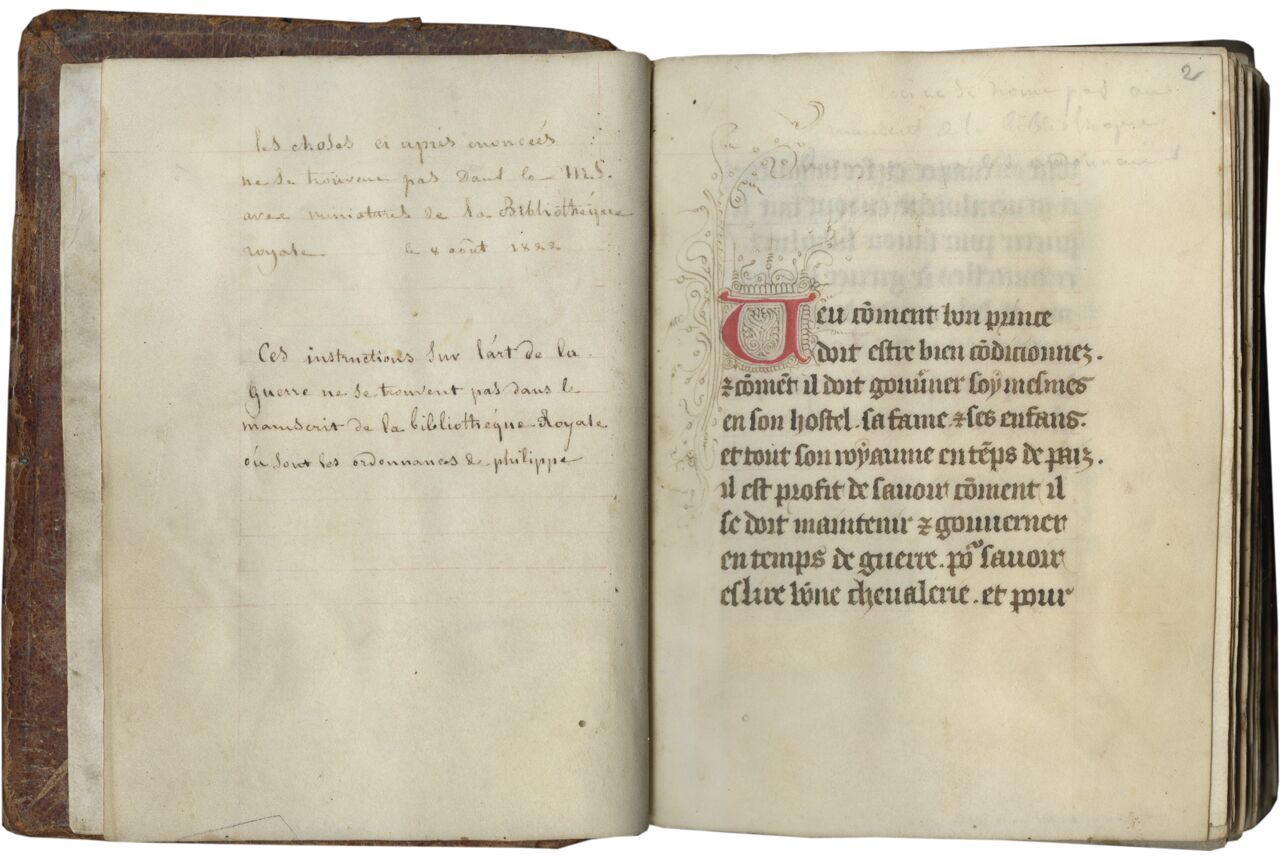 les choses ci après énoncées
ne se trouvent pas dans le MS.
avec miniatures de la Bibliothéque
royale. le 8 août 1822
Ces instructions sur l'art de la
guerre ne se trouvent pas dans le
manuscrit de la bibliothéque Royale
où sont les ordonnances de philippe
2
ceci ne se trouve pas au
manuscrit de la bibliotheque
Ueu cōment bon prince
doit estre bien cōdicionnez.
⁊ cōmēt il doit gouūner soy mesmes
en son hostel. sa fame ⁊ ses enfans.
et tout son royaume en tēps de paiz.
il est profit de savoir cōment il
se doit maintenir ⁊ gouuerner
en temps de guerre. po᷑ savoir
eslire bōne cheualerie. et pour